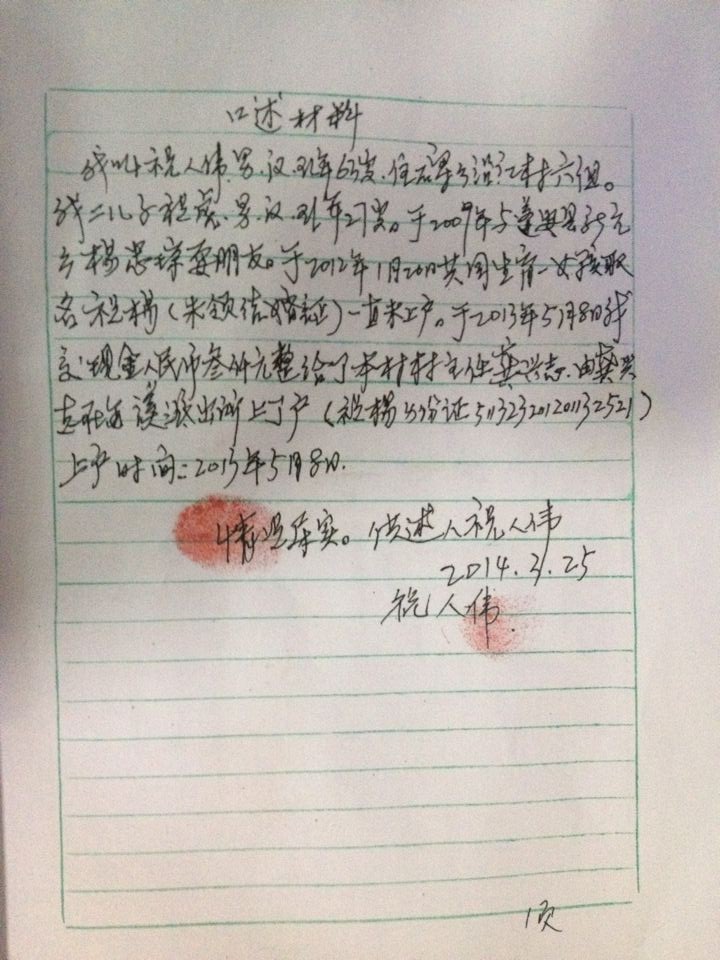 口述材料
我叫祝人伟.男.汉.现年63岁.住石梁乡沿江村六组。
我二儿子祝虎.男.汉.现年27岁。于2009年与蓬安县新元
乡杨思 耍朋友。于2012年1月20日共同生育一女孩取
名祝杨(未领结婚证)一直未上户。于2013年5月8日我
交现金人民币叁仟元整给了本村村主任龚兴志.由龚兴
志在 溪派出所上了户(祝杨身份证511323201201132521)
上户时间:2013年5月8日.
情况属实。供述人祝人伟
2014.3.25
祝人伟
1页